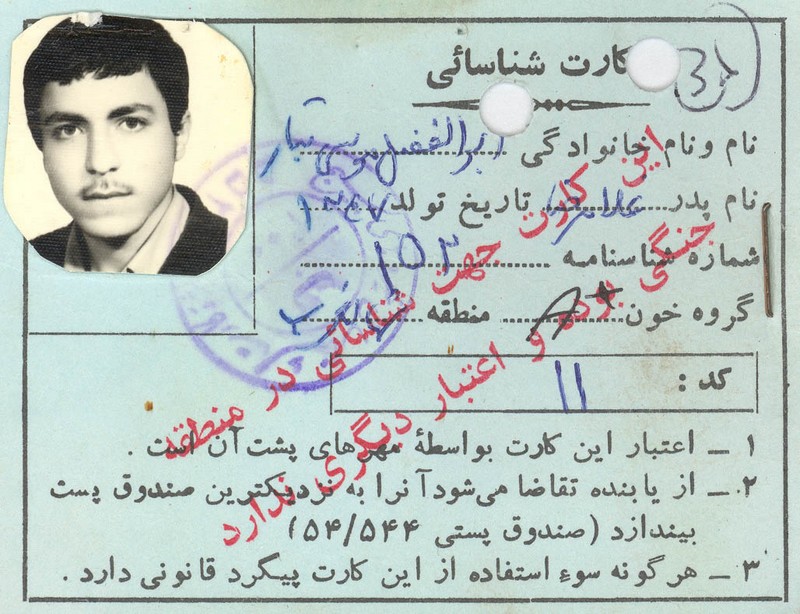 کارت شناسائی
نام ونام خانوادگی ابوالفضل
نام پدر غلامرضا تاریخ تولد ۱۳۴۷
شماره شناسنامه ۱۵۲
گروه خون A+ منطقه
کد : ۱۱
۱ – اعتبار این کارت بواسطهٔ مهرهای پشت آن است .
۲ – از یابنده تقاضا می‌شود آنرا به نزدیکترین صندوق پست
بیندازد (صندوق پستی ۵۴/۵۴۴)
۳ – هرگونه سوء استفاده از این کارت پیگرد قانونی دارد .
این کارت جهت شناسائی در منطقه
جنگی بوده و اعتبار دیگری ندارد